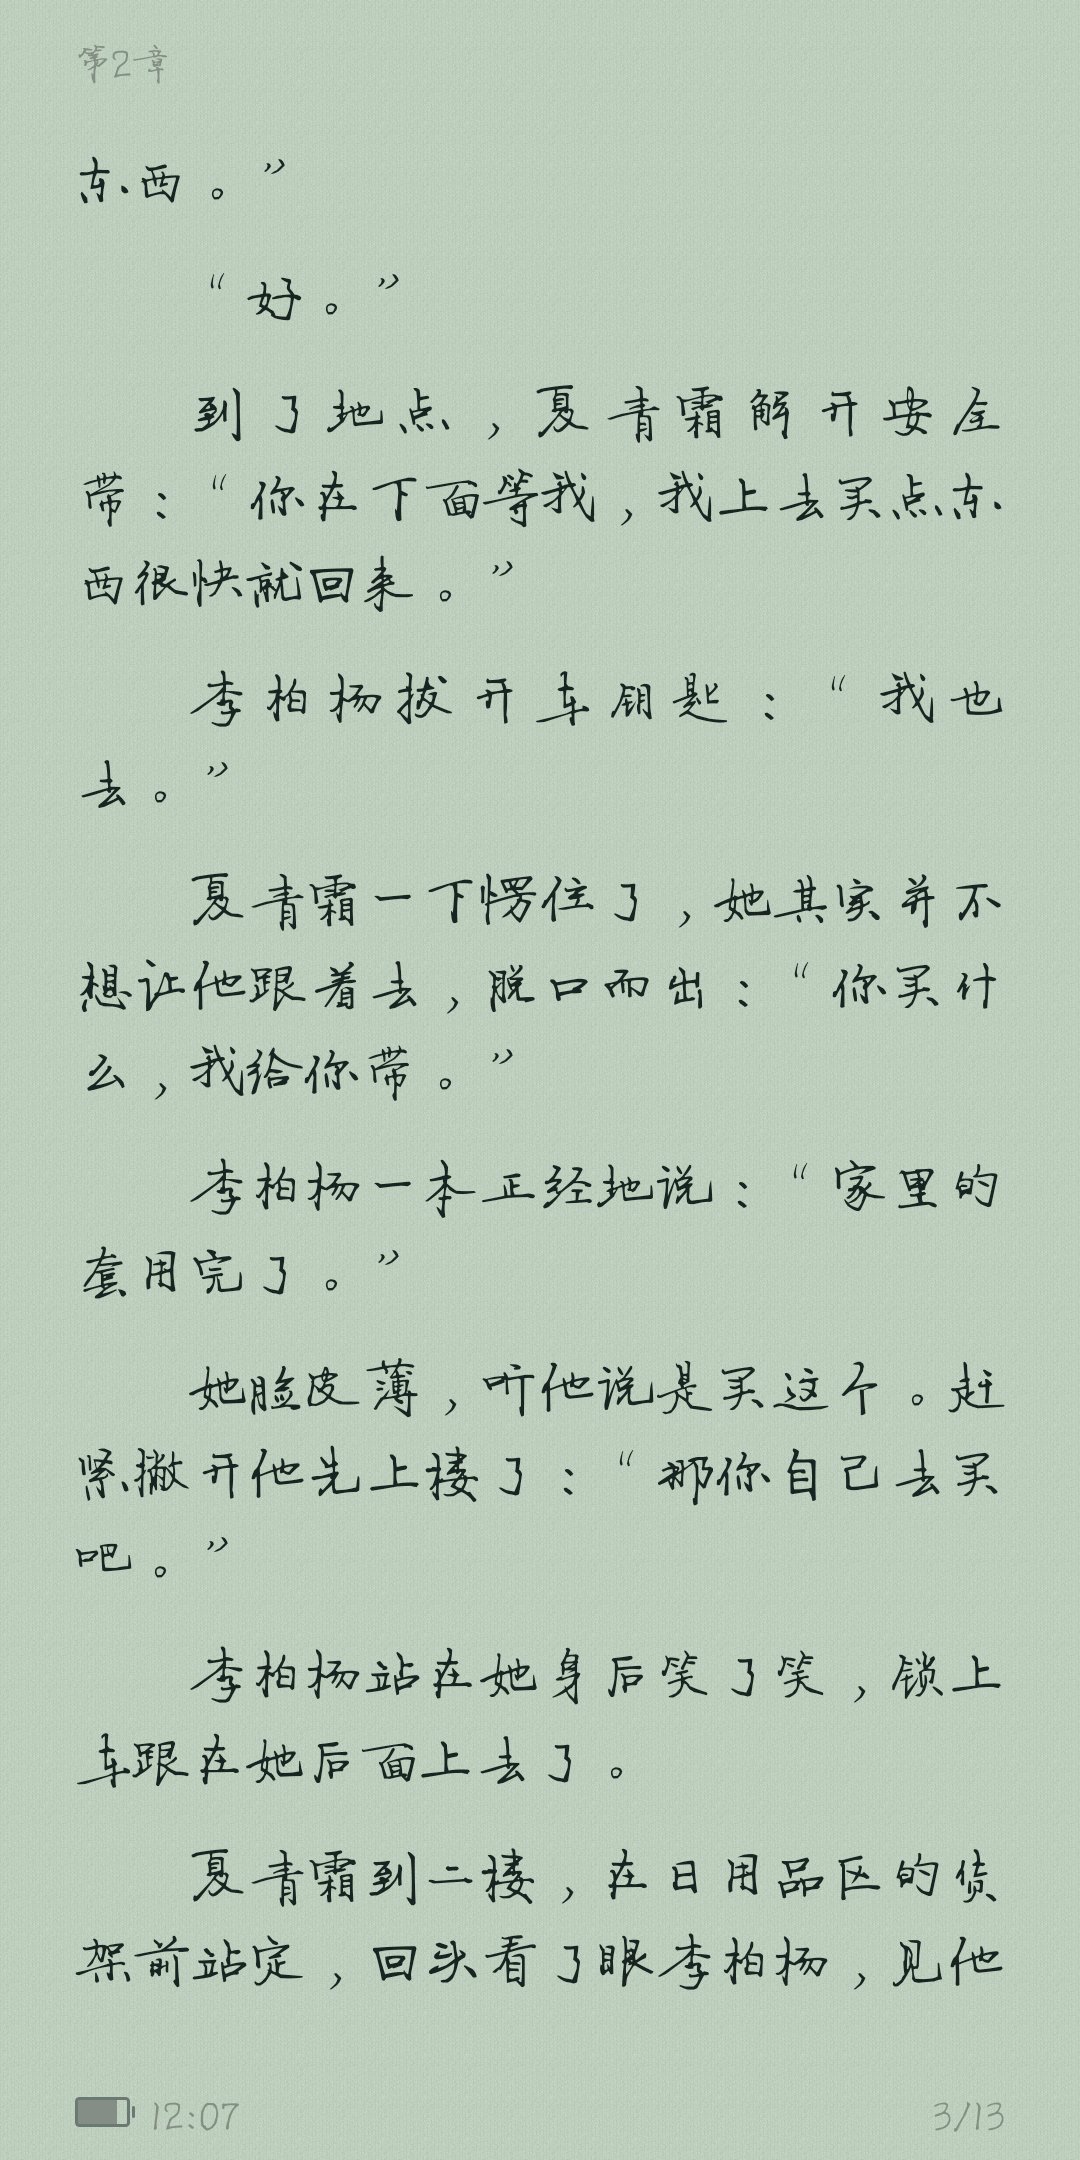 第2章
东西。”
“好。”
到了地点，夏青霜解开安全
带：“你在下面等我，我上去买点东
西很快就回来。”
李柏杨拔开车钥匙：“我也
去。”
夏青霜一下愣住了，她其实并不
想让他跟着去，脱口而出：“你买什
么，我给你带。”
李柏杨一本正经地说：“家里的
套用完了。”
她脸皮薄，听他说是买这个。赶
紧撇开他先上楼了：“那你自己去买
吧。”
李柏杨站在她身后笑了笑，锁上
车跟在她后面上去了。
夏青霜到二楼，在日用品区的货
架前站定，回头看了眼李柏杨，见他
12:07
3/13